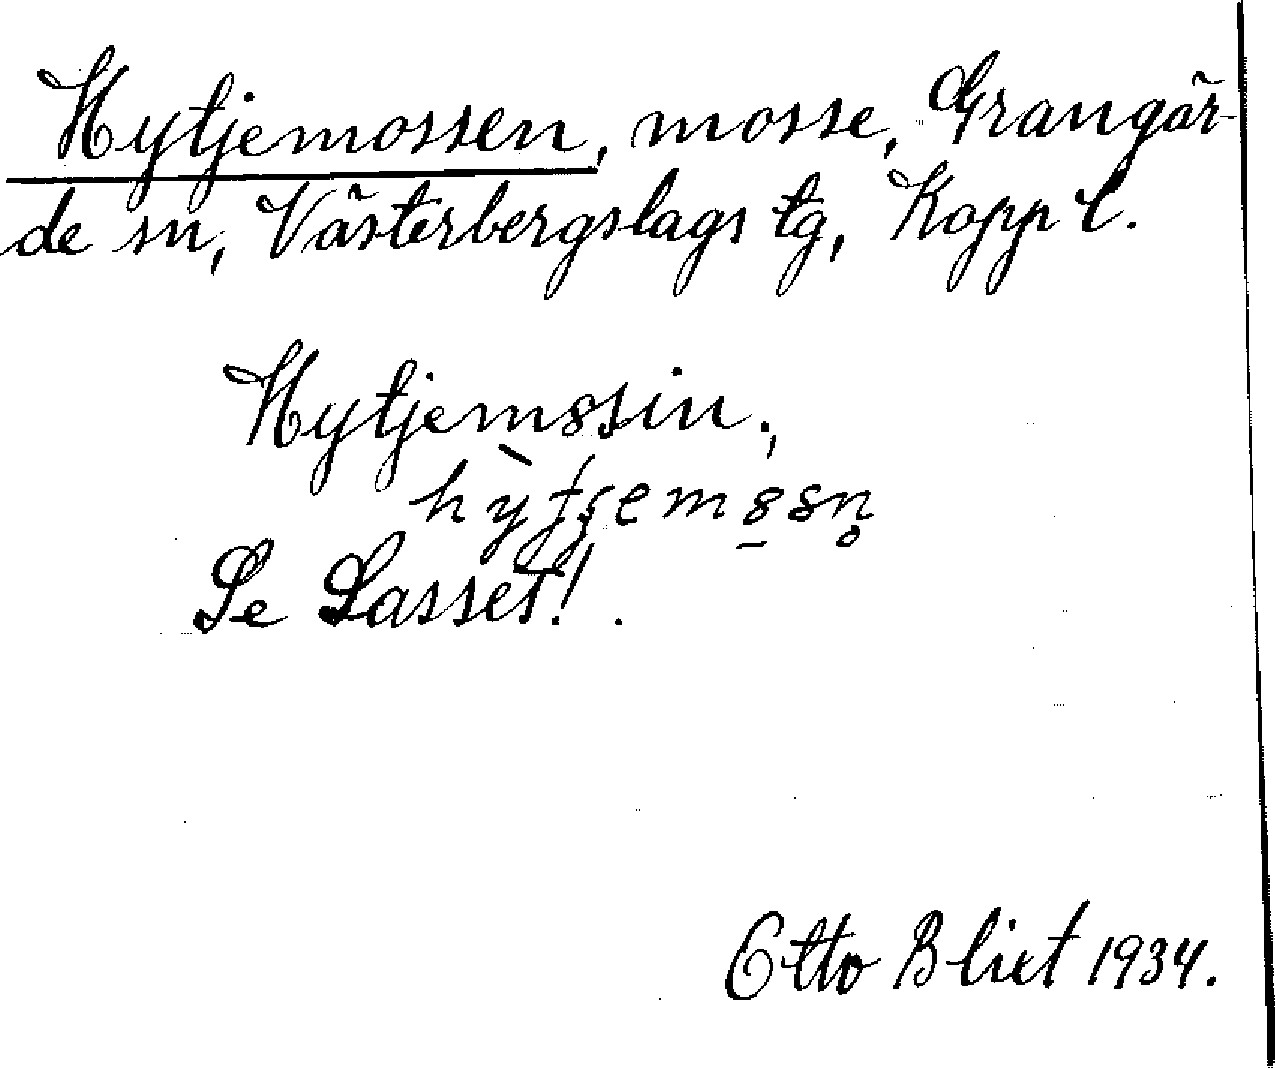 Hytjemossen, mosse, Grangär-
de sn, Västerbergslags tg, Kopp l.
Hytjemossin.,
Se Lasset!.
Otto Blixt 1934.